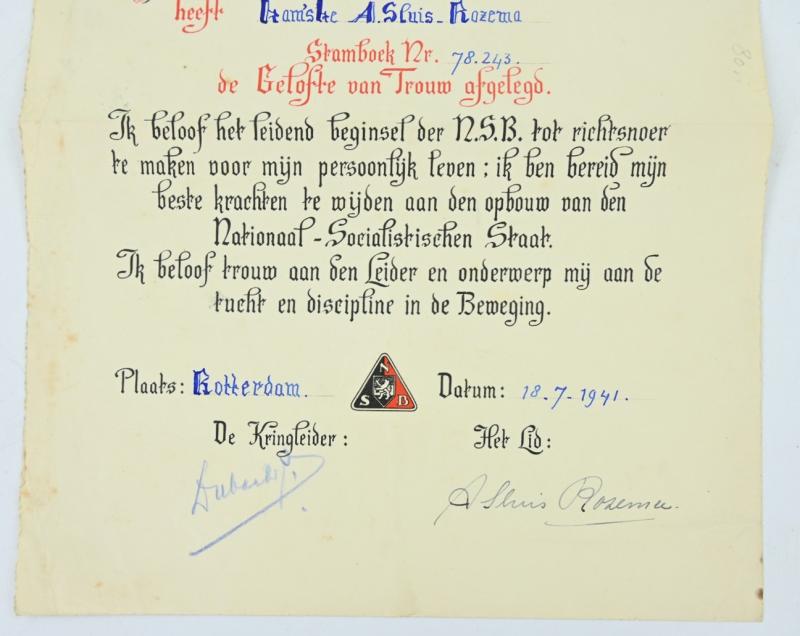 heeft Kam'ske A. Sluis-Rozema
Stamboek Nr. 78.243.
de Gelofte van Trouw afgelegd.
Ik beloof het leidend beginsel der N.S.B. tot richtsnoer
te maken voor mijn persoonlijk leven; ik ben bereid mijn
beste krachten te wijden aan den opbouw van den
Nationaal-Socialistischen Staat.
Ik beloof trouw aan den Leider en onderwerp mij aan de
tucht en discipline in de Beweging.
Plaats: Rotterdam.
N
S B
Datum: 18-7-1941.
De Kringleider:
Het Lid:
A Sluis Rozema.
80,-